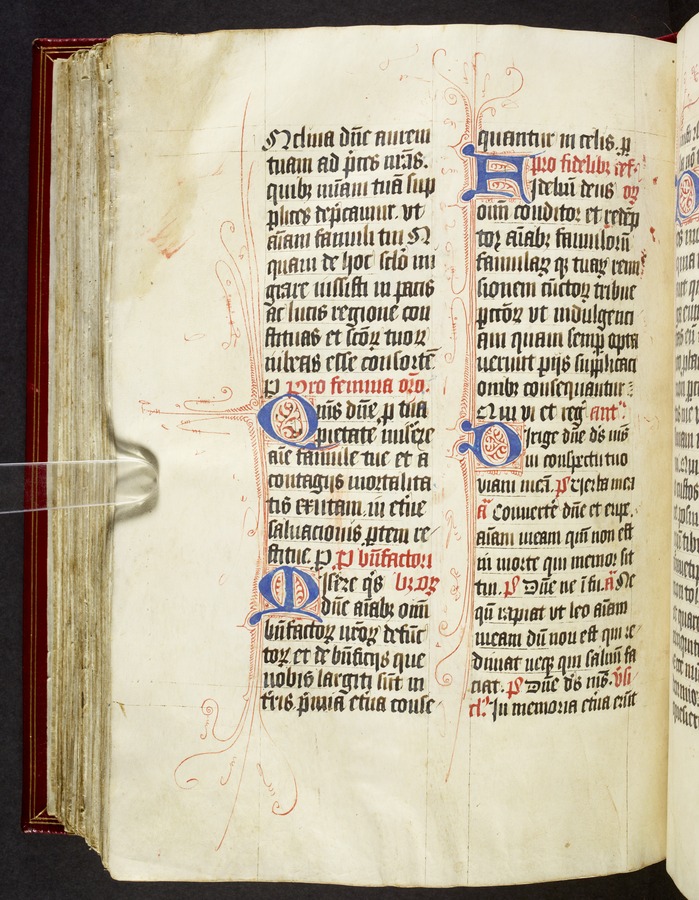 Nclina dñe aurem
tuam ad p̃ces nr̃as.
quibꝫ mĩam tuã sup
plices dep̃camur. vt
aĩam famuli tui N
quam de hoc sclõ mi
grare iussisti in pacis
ac lucis regione con
stituas et scõꝝ tuoꝝ
iubeas esse consortẽ
P̱ Pro femina oro.
Quis dñe p̱ tua
pietate misere
aĩe famule tue et a
contagijs mortalita
tis exutam. in etñe
saluacionis p̱tem re
stitue. P̱ P̱ bñfactori
Misere q̃s bꝫ oꝝ
dñe aĩabꝫ oĩm
bñfactoꝝ nroꝝ defũc
toꝝ et de bñficijs que
nobis largiti sũt in
tr̃is p̃mia etña conse
quantur in celis. p̱
pro fidelibꝫ
Fidelium deus
oĩm conditor et redẽp
tor aĩabꝫ famulorũ
famulaꝝ qꝫ tuaꝝ remi
sionem cũctoꝝ tribue
pctõꝝ vt indulgenci
am quam semp̱ opta
uerunt pijs supplicaci
onibꝫ consequantur
Qui vi et reg̃ ant̃.
Dirige dñe ds̃ ms̃
in conspectu tuo
viam meã. ps̃ Verba mea
a Conuertẽ dñe et erip̱.
aĩam meam qm̃ non est
in morte qui memor sit
tui. ps̃ Dñe ne ĩ fu. a Ne
qñ rapiat vt leo aĩam
meam dũ non est qui re
dimat neqꝫ qui saluũ fa
ciat. ps̃ Dñe ds̃ ms̃. v̓si
cl̓. In memoria etña erũt